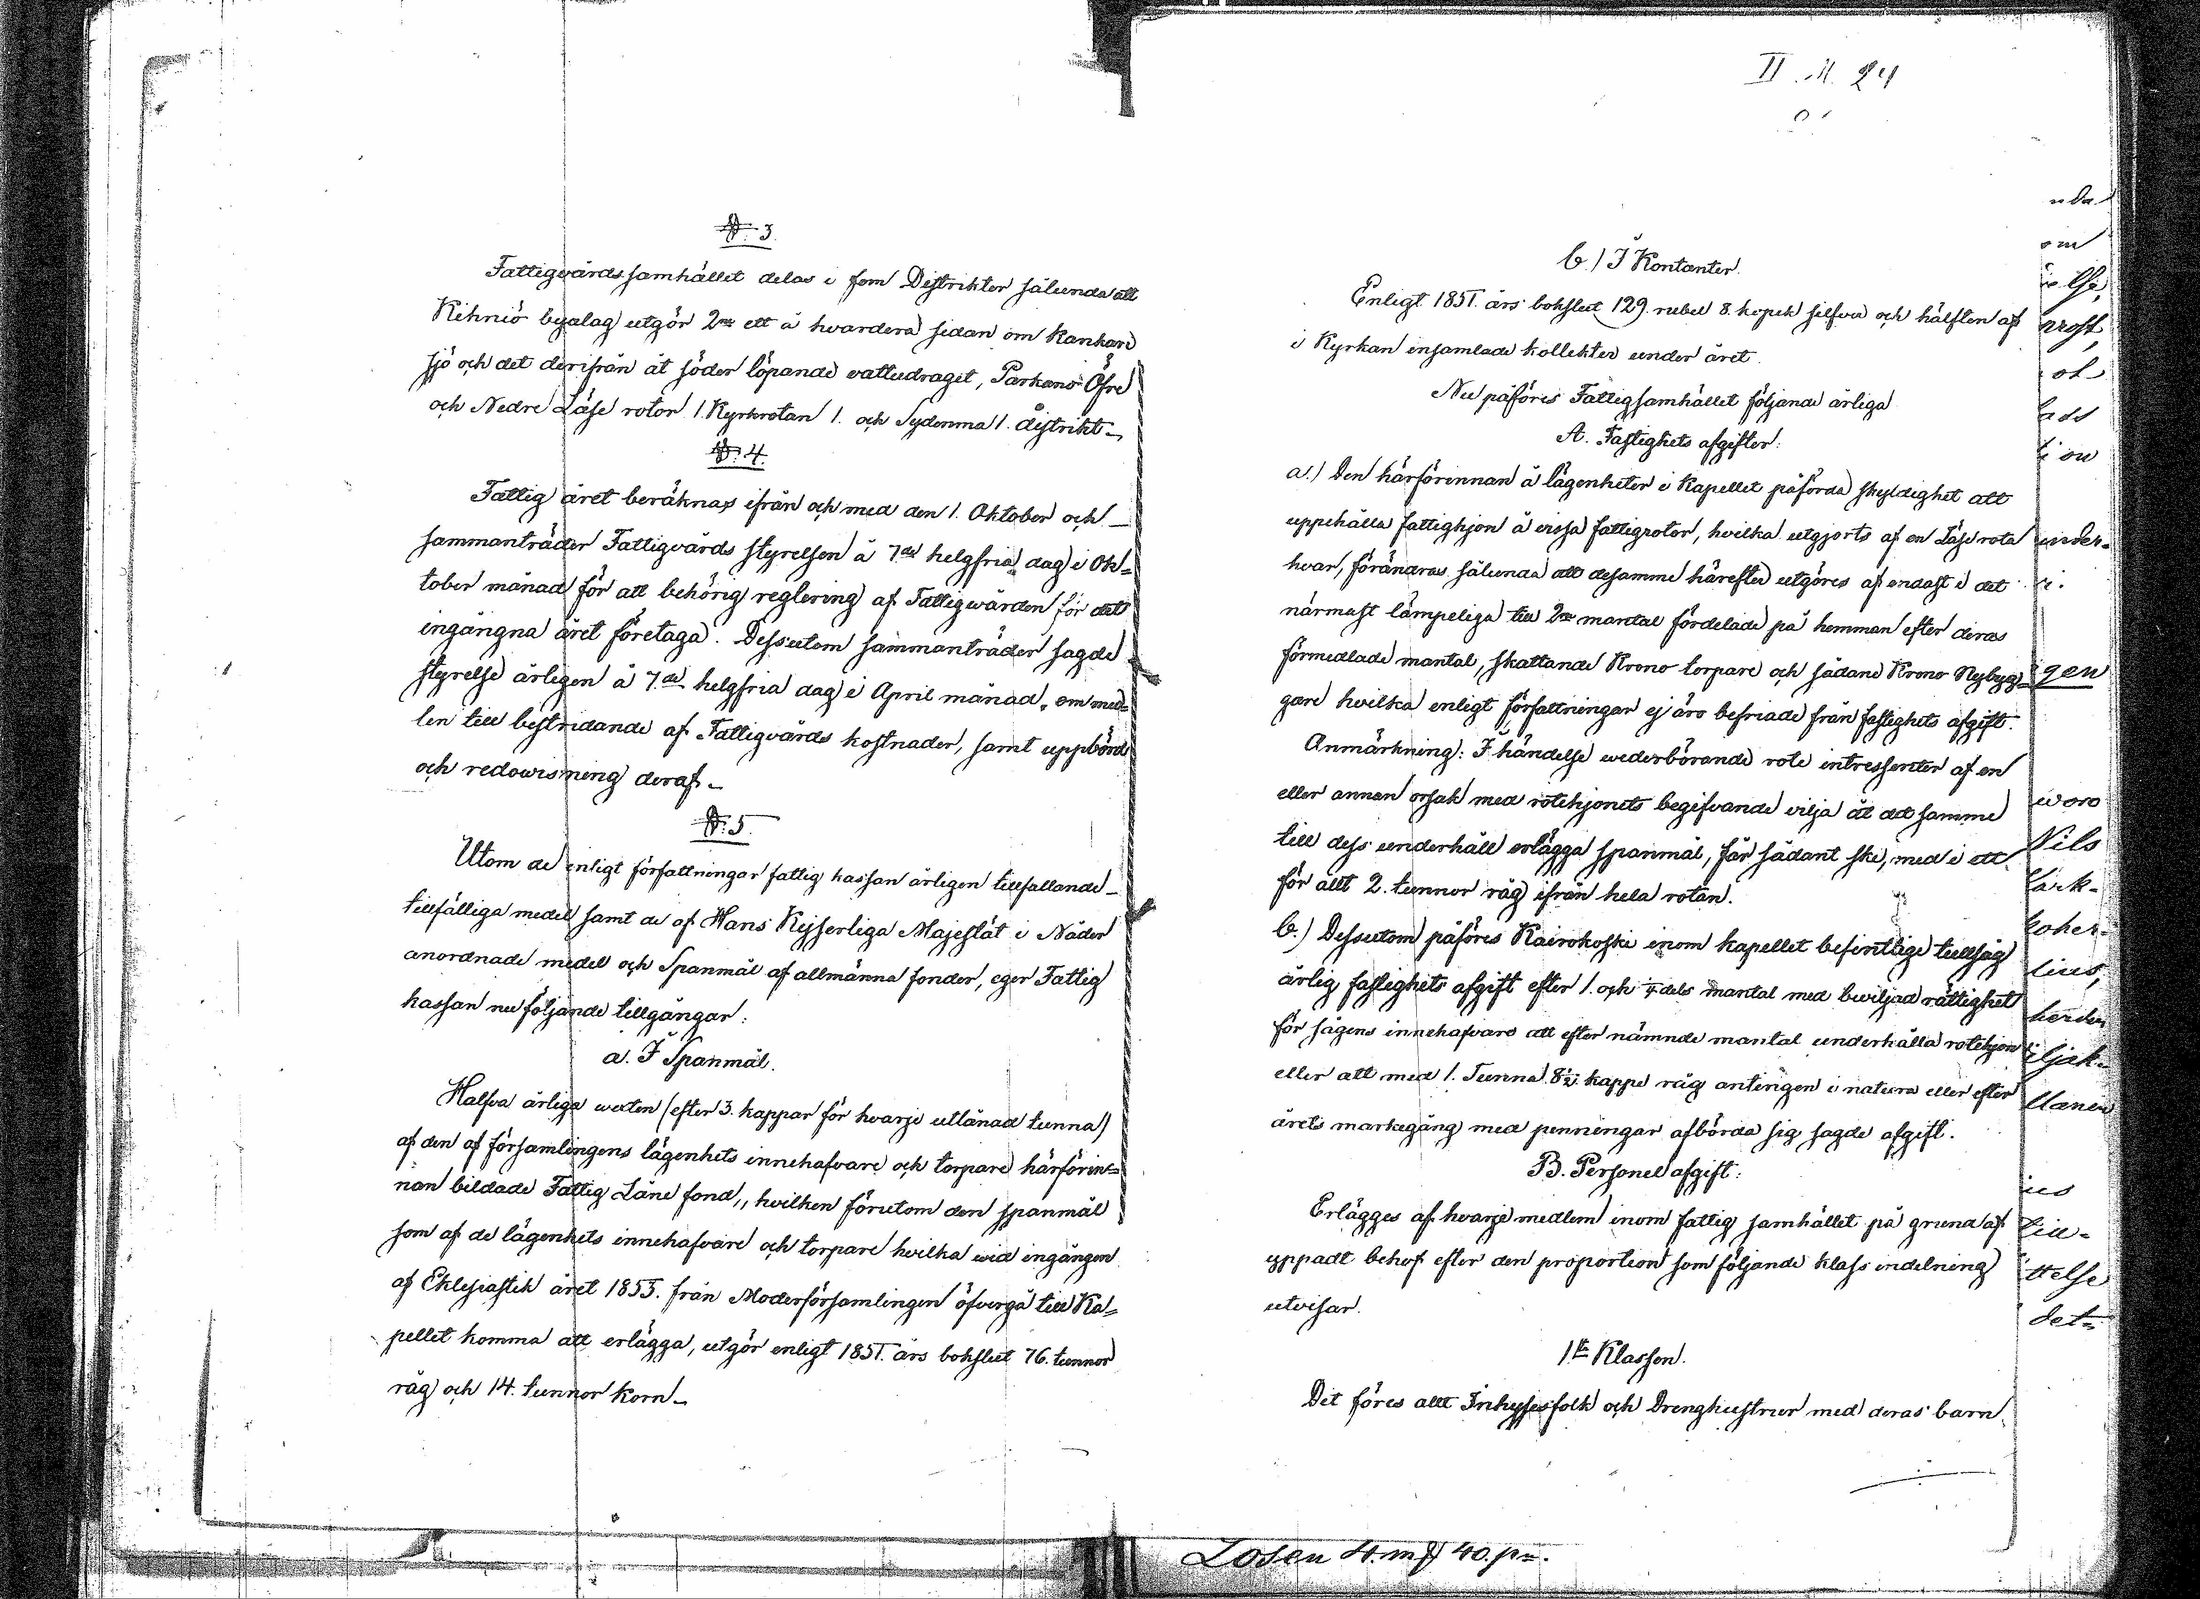 §. 3.
Fattigvårdssamhället delas i fem Distrikter sålunda att
Kihniö byalag utgör 2ne ett å hvardera sidan om Kankari
sjö och det derifrån åt söder löpande vattudraget, Parkano Öfre
och Nedre Läse rotor 1. Kyrkrotan 1. och Sydenmaa 1. distrikt.
§. 4.
Fattig året beräknas ifrån och med den 1. Oktober och
sammanträder Fattigvårds styrelsen å 7de helgfria dag i Ok=
tober månad för att behörig reglering af Fattigwården för det
ingångna året företaga. Dessutom sammanträder sagde
styrelse årligen å 7de helgfria dag i April månad, om med=
len till bestridande af Fattigvårds kostnader, samt uppbörd
och redowisning deraf.
§. 5.
Utom de enligt författningar fattig kassan årligen tillfallande
tillfälliga medel samt de af Hans Kejserliga Majestät i Nåder
anordnade medel och Spanmål af allmänna fonder, eger Fattig
kassan nu följande tillgångar:
a. I Spanmål.
Halfva årliga wexten (efter 3. kappar för hvarje utlånad tunna)
af den af församlingens lägenhets innehafvare och torpare härförin=
nan bildade Fattig Låne fond,, hvilken förutom den spanmål
som af de lägenhets innehafvare och torpare hvilka wid ingången
af Eklesiastik året 1853. från Moderförsamlingen öfvergå till Ka=
pellet komma att erlägga, utgör enligt 1851. års bokslut 76. tunnor
råg och 14. tunnor korn.
II. M. 24
b.) I Kontanter.
Enligt 1851. års bokslut 129. rubel 8. kopek silfver och hälften af
i Kyrkan insamlade kollekter under året.
Nu påföres Fattigsamhället följande årliga
A. Fastighets afgifter:
a.) Den härförinnan å lägenheter i Kapellet påförda skyldighet att
uppehålla fattighjon å vissa fattigrotor, hvilka utgjorts af en Läse rota
hvar, förändras sålunda att desamme härefter utgöres af endast i det
närmast lämpeliga till 2ne mantal fördelade på hemman efter deras
förmedlade mantal, skattande Krono torpare och sådane Krono Nybyg=
gare hvilka enligt författningar ej äro befriade från fastighets afgift.
Anmärkning: I händelse wederbörande rote intressenter af en
eller annan orsak med rotehjonets begifvande vilja åt det samme
till dess underhåll erlägga spanmål, får sådant ske, med i ett
för allt 2. tunnor råg ifrån hela rotan.
b.) Dessutom påföres Kairokoski inom kapellet befintlige tullsåg
årlig fastighets afgift efter 1. och 1/4 dels mantal med beviljad rättighet
för sågens innehafvare att efter nämnde mantal underhålla rotehjon
eller att med 1. Tunna 8 1/2 kappe råg antingen i natura eller efter
årets markegång med penningar afbörda sig sagde afgift.
B. Personel afgift:
Erlägges af hvarje medlem inom fattig samhället på grund af
uppadt behof efter den proportion som följande klass indelning
utvisar.
1ste Klassen.
Dit föres allt Inhysesfolk och Drenghustrur med deras barn
nda
om
ilse,
prost,
ol
lass
under=
gen
woro
Nils
lius,
herden
ttelse
det=
Losen 4. mf 40. p.